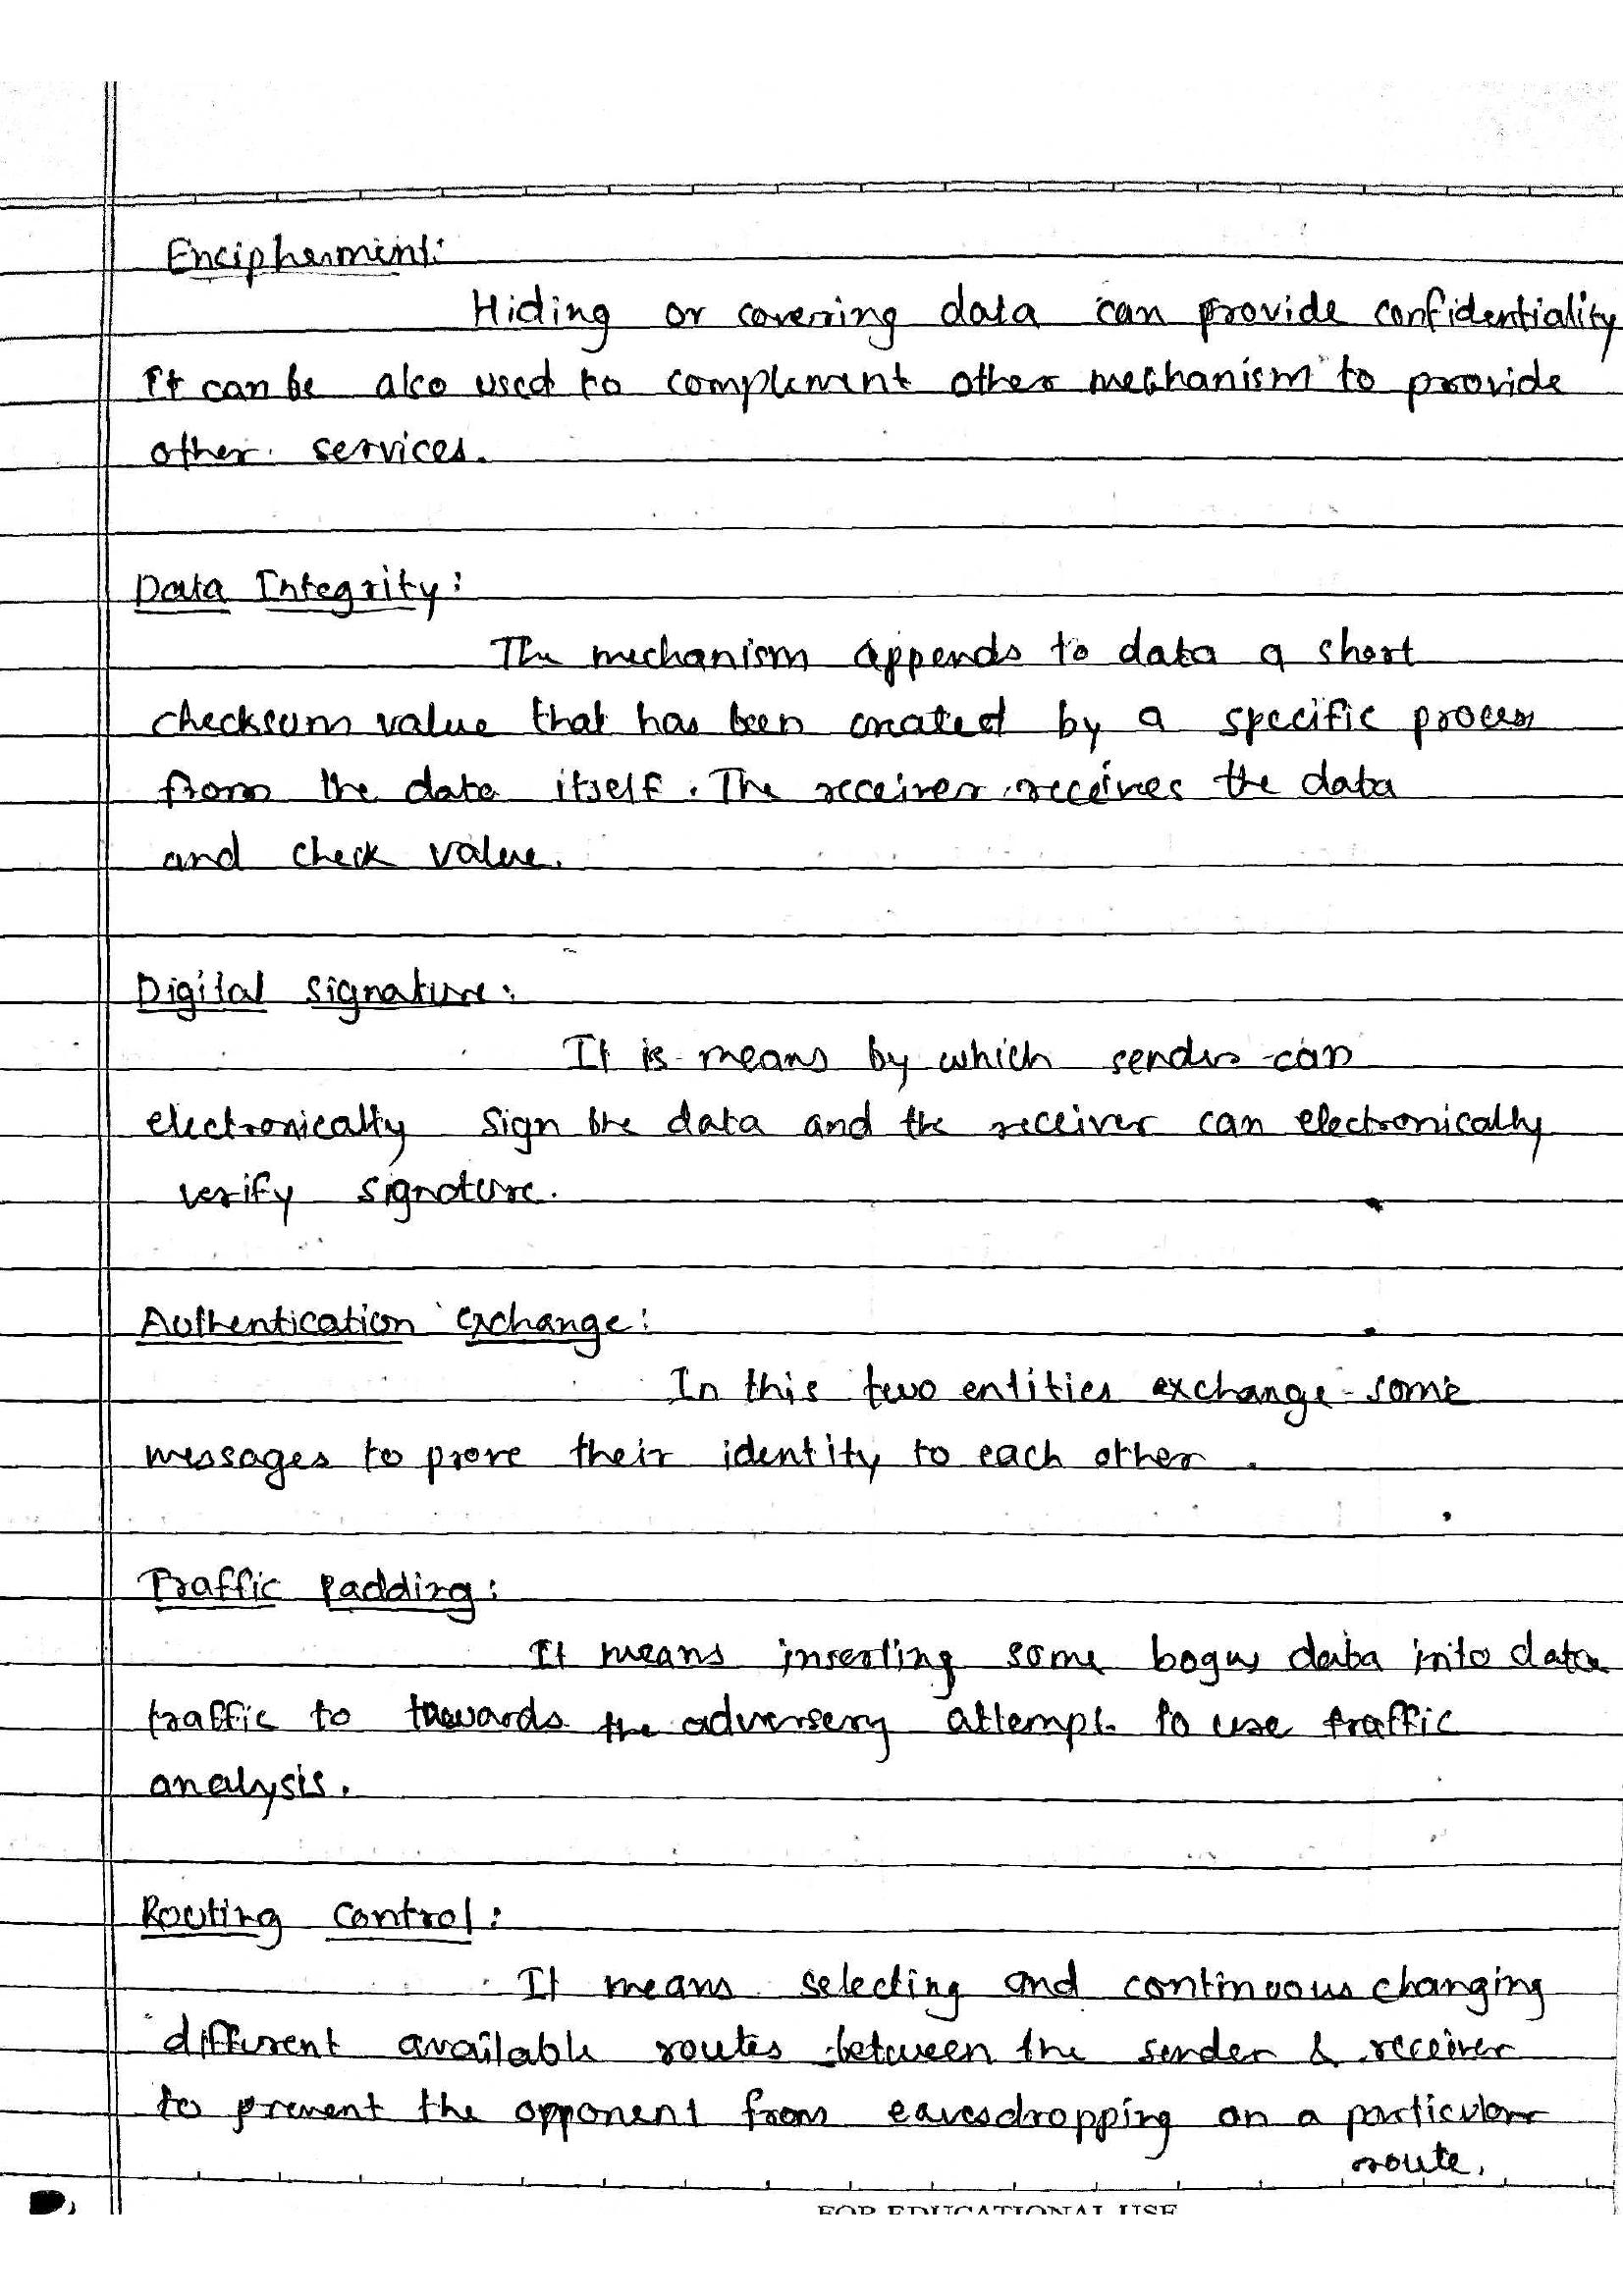 Encipherment:
Hiding or covering data can provide confidentiality
It can be also used to complement other mechanism to provide
other services.
Data Integrity:
The mechanism appends to data a short
checksum value that has been created by a specific process
from the data itself. The receiver receives the data
and check value.
Digital signature:
It is means by which sender can
electronically sign the data and the receiver can electronically
verify signature.
Authentication exchange:
In this two entities exchange some
messages to prove their identity to each other.
Traffic Padding:
It means inserting some bogus data into data
traffic to the adversery attempt to use traffic
analysis.
Routing control:
It means selecting and continuous changing
different available routes between the sender & receiver
to prevent the opponent from eavesdropping on a particular
route.
FOR EDUCATIONAL USE